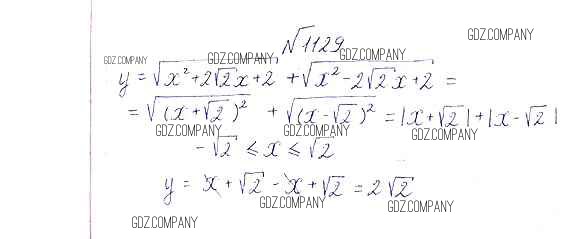 №1129
GDZ.COMPANY
GDZ.COMPANY GDZ.COMPANY GDZ.COMPANY
y = √(x² + 2√2x + 2) + √(x² - 2√2x + 2) =
= √((x + √2)²) + √((x - √2)²) = |x + √2| + |x - √2|
GDZ.COMPANY GDZ.COMPANY GDZ.COMPANY
- √2 ≤ x ≤ √2
y = x + √2 - x + √2 = 2√2
GDZ.COMPANY GDZ.COMPANY
GDZ.COMPANY